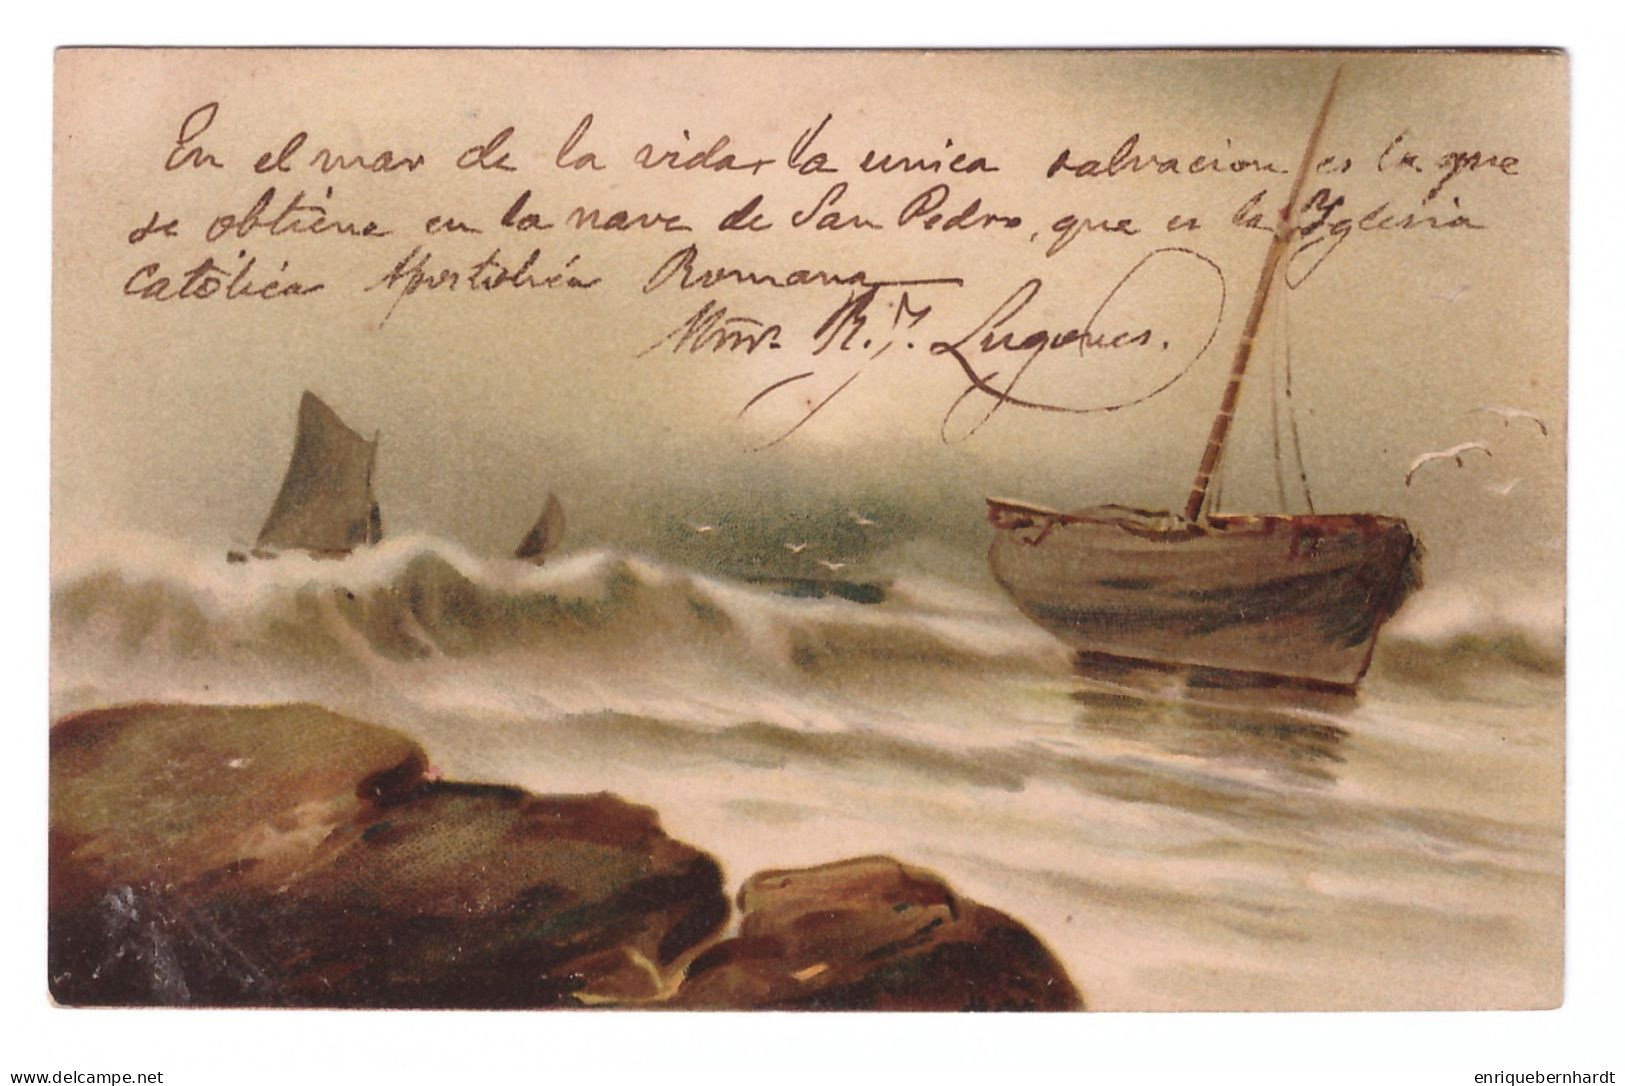 En el mar de la vida, la unica salvacion es la que
se obtiene en la nave de San Pedro, que es la Yglesia
Católica Apostólica Romana
R. J. Lugones.
delcampe.net
enriquebernhardt